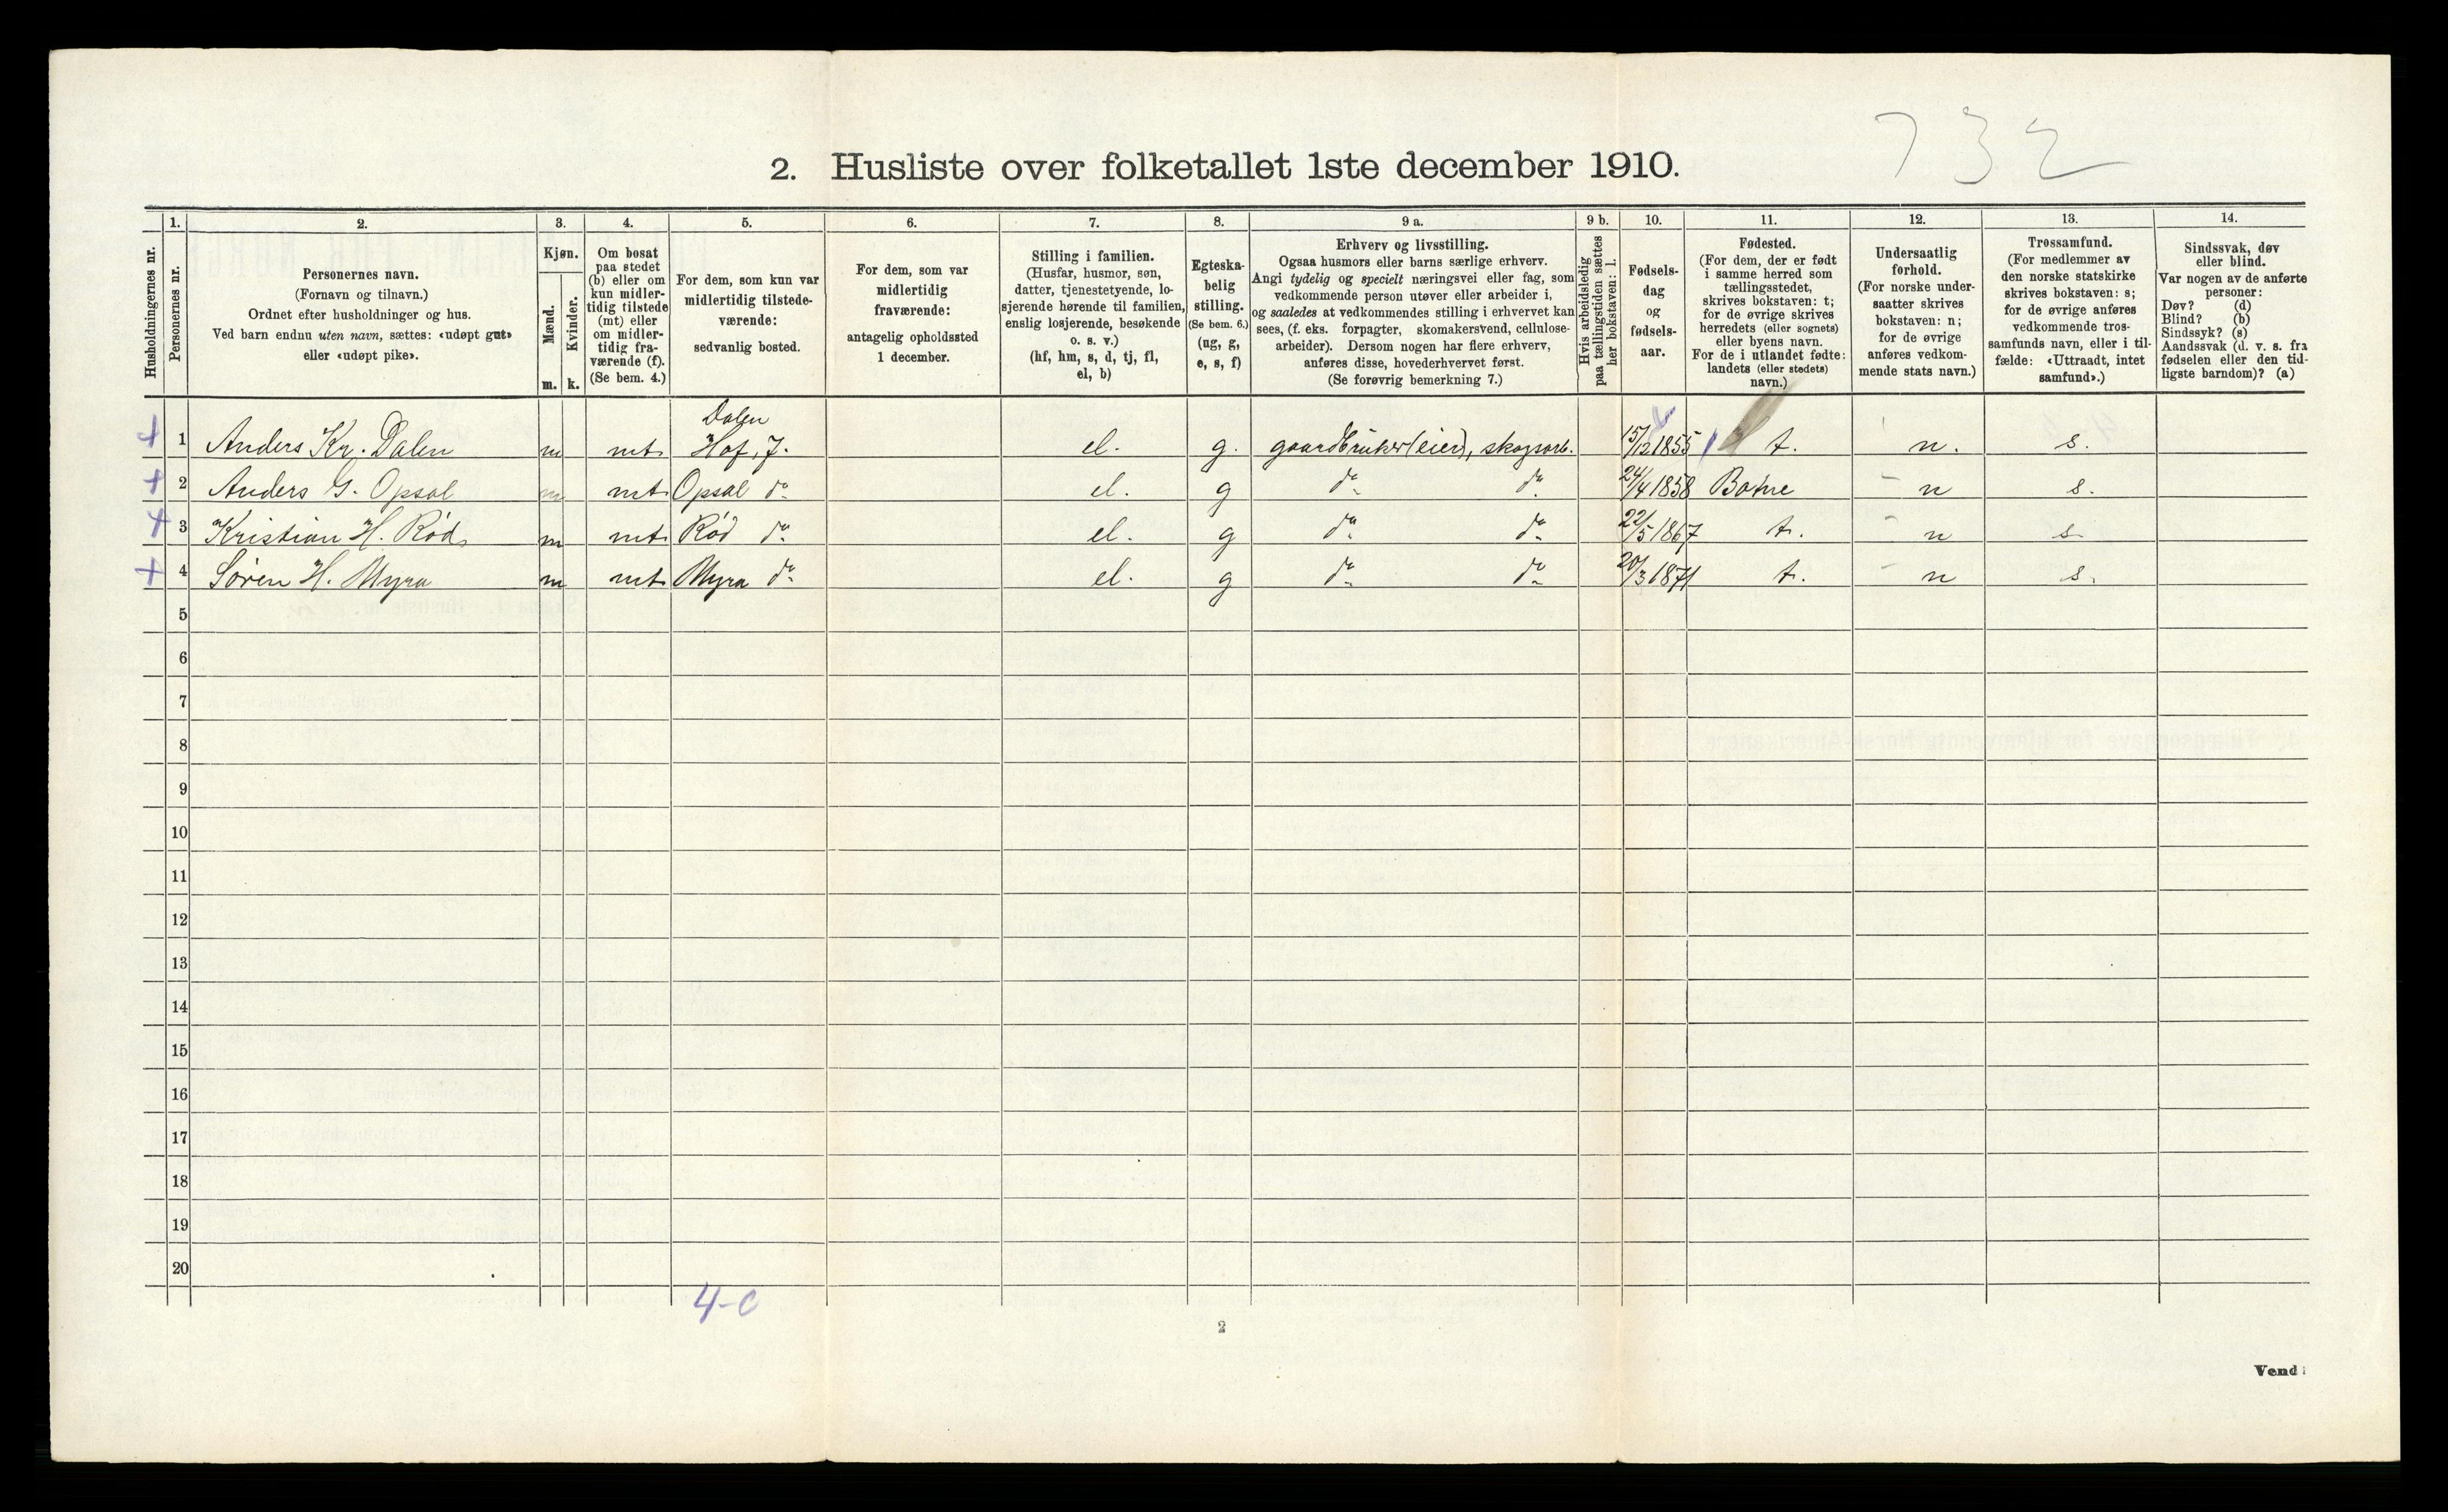 732
2. Husliste over folketallet 1ste december 1910.
1. 2. 3. 4. 5. 6. 7. 8. 9 a. 9 b. 10. 11. 12. 13. 14.
Husholdningernes nr.
Personernes nr.
Personernes navn.
(Fornavn og tilnavn.)
Ordnet efter husholdninger og hus.
Ved barn endnu uten navn, sættes: «udøpt gut»
eller «udøpt pike».
Kjøn.
Mænd.
m.
Kvinder.
k.
Om bosat
paa stedet
(b) eller om
kun midler-
tidig tilstede
(mt) eller
om midler-
tidig fra-
værende (f).
(Se bem. 4.)
For dem, som kun var
midlertidig tilstede-
værende:
sedvanlig bosted.
For dem, som var
midlertidig
fraværende:
antagelig opholdssted
1 december.
Stilling i familien.
(Husfar, husmor, søn,
datter, tjenestetyende, lo-
sjerende hørende til familien,
enslig losjerende, besøkende
o. s. v.)
(hf, hm, s, d, tj, fl,
el, b)
Egteska-
belig
stilling.
(Se bem. 6.)
(ug, g,
e, s, f)
Erhverv og livsstilling.
Ogsaa husmors eller barns særlige erhverv.
Angi tydelig og specielt næringsvei eller fag, som
vedkommende person utøver eller arbeider i,
og saaledes at vedkommendes stilling i erhvervet kan
sees, (f. eks. forpagter, skomakersvend, cellulose-
arbeider). Dersom nogen har flere erhverv,
anføres disse, hovederhvervet først.
(Se forøvrig bemerkning 7.)
Hvis arbeidsledig
paa tællingstiden sættes
her bokstaven: l.
Fødsels-
dag
og
fødsels-
aar.
Fødested.
(For dem, der er født
i samme herred som
tællingsstedet,
skrives bokstaven: t;
for de øvrige skrives
herredets (eller sognets)
eller byens navn.
For de i utlandet fødte:
landets (eller stedets)
navn.)
Undersaatlig
forhold.
(For norske under-
saatter skrives
bokstaven: n;
for de øvrige
anføres vedkom-
mende stats navn.)
Trossamfund.
(For medlemmer av
den norske statskirke
skrives bokstaven: s;
for de øvrige anføres
vedkommende tros-
samfunds navn, eller i til-
fælde: «Uttraadt, intet
samfund».)
Sindssvak, døv
eller blind.
Var nogen av de anførte
personer:
Døv? (d)
Blind? (b)
Sindssyk? (s)
Aandssvak (d. v. s. fra
fødselen eller den tid-
ligste barndom)? (a)
Dalen
+ 1 Anders Kr. Dalen m mt Hof, J. el. g. gaardbruker (eier), skogsarb. 15/12 1855 t. n. s.
+ 2 Anders G. Opsal m mt Opsal do el. g do do 24/4 1858 Botne n s.
+ 3 Kristian H. Rød m mt Rød do el. g do do 22/5 1867 t. n s
+ 4 Søren H. Myra m mt Myra do el. g do do 20/3 1871 t. n s.
5
6
7
8
9
10
11
12
13
14
15
16
17
18
19
20
4-0
2
Vend